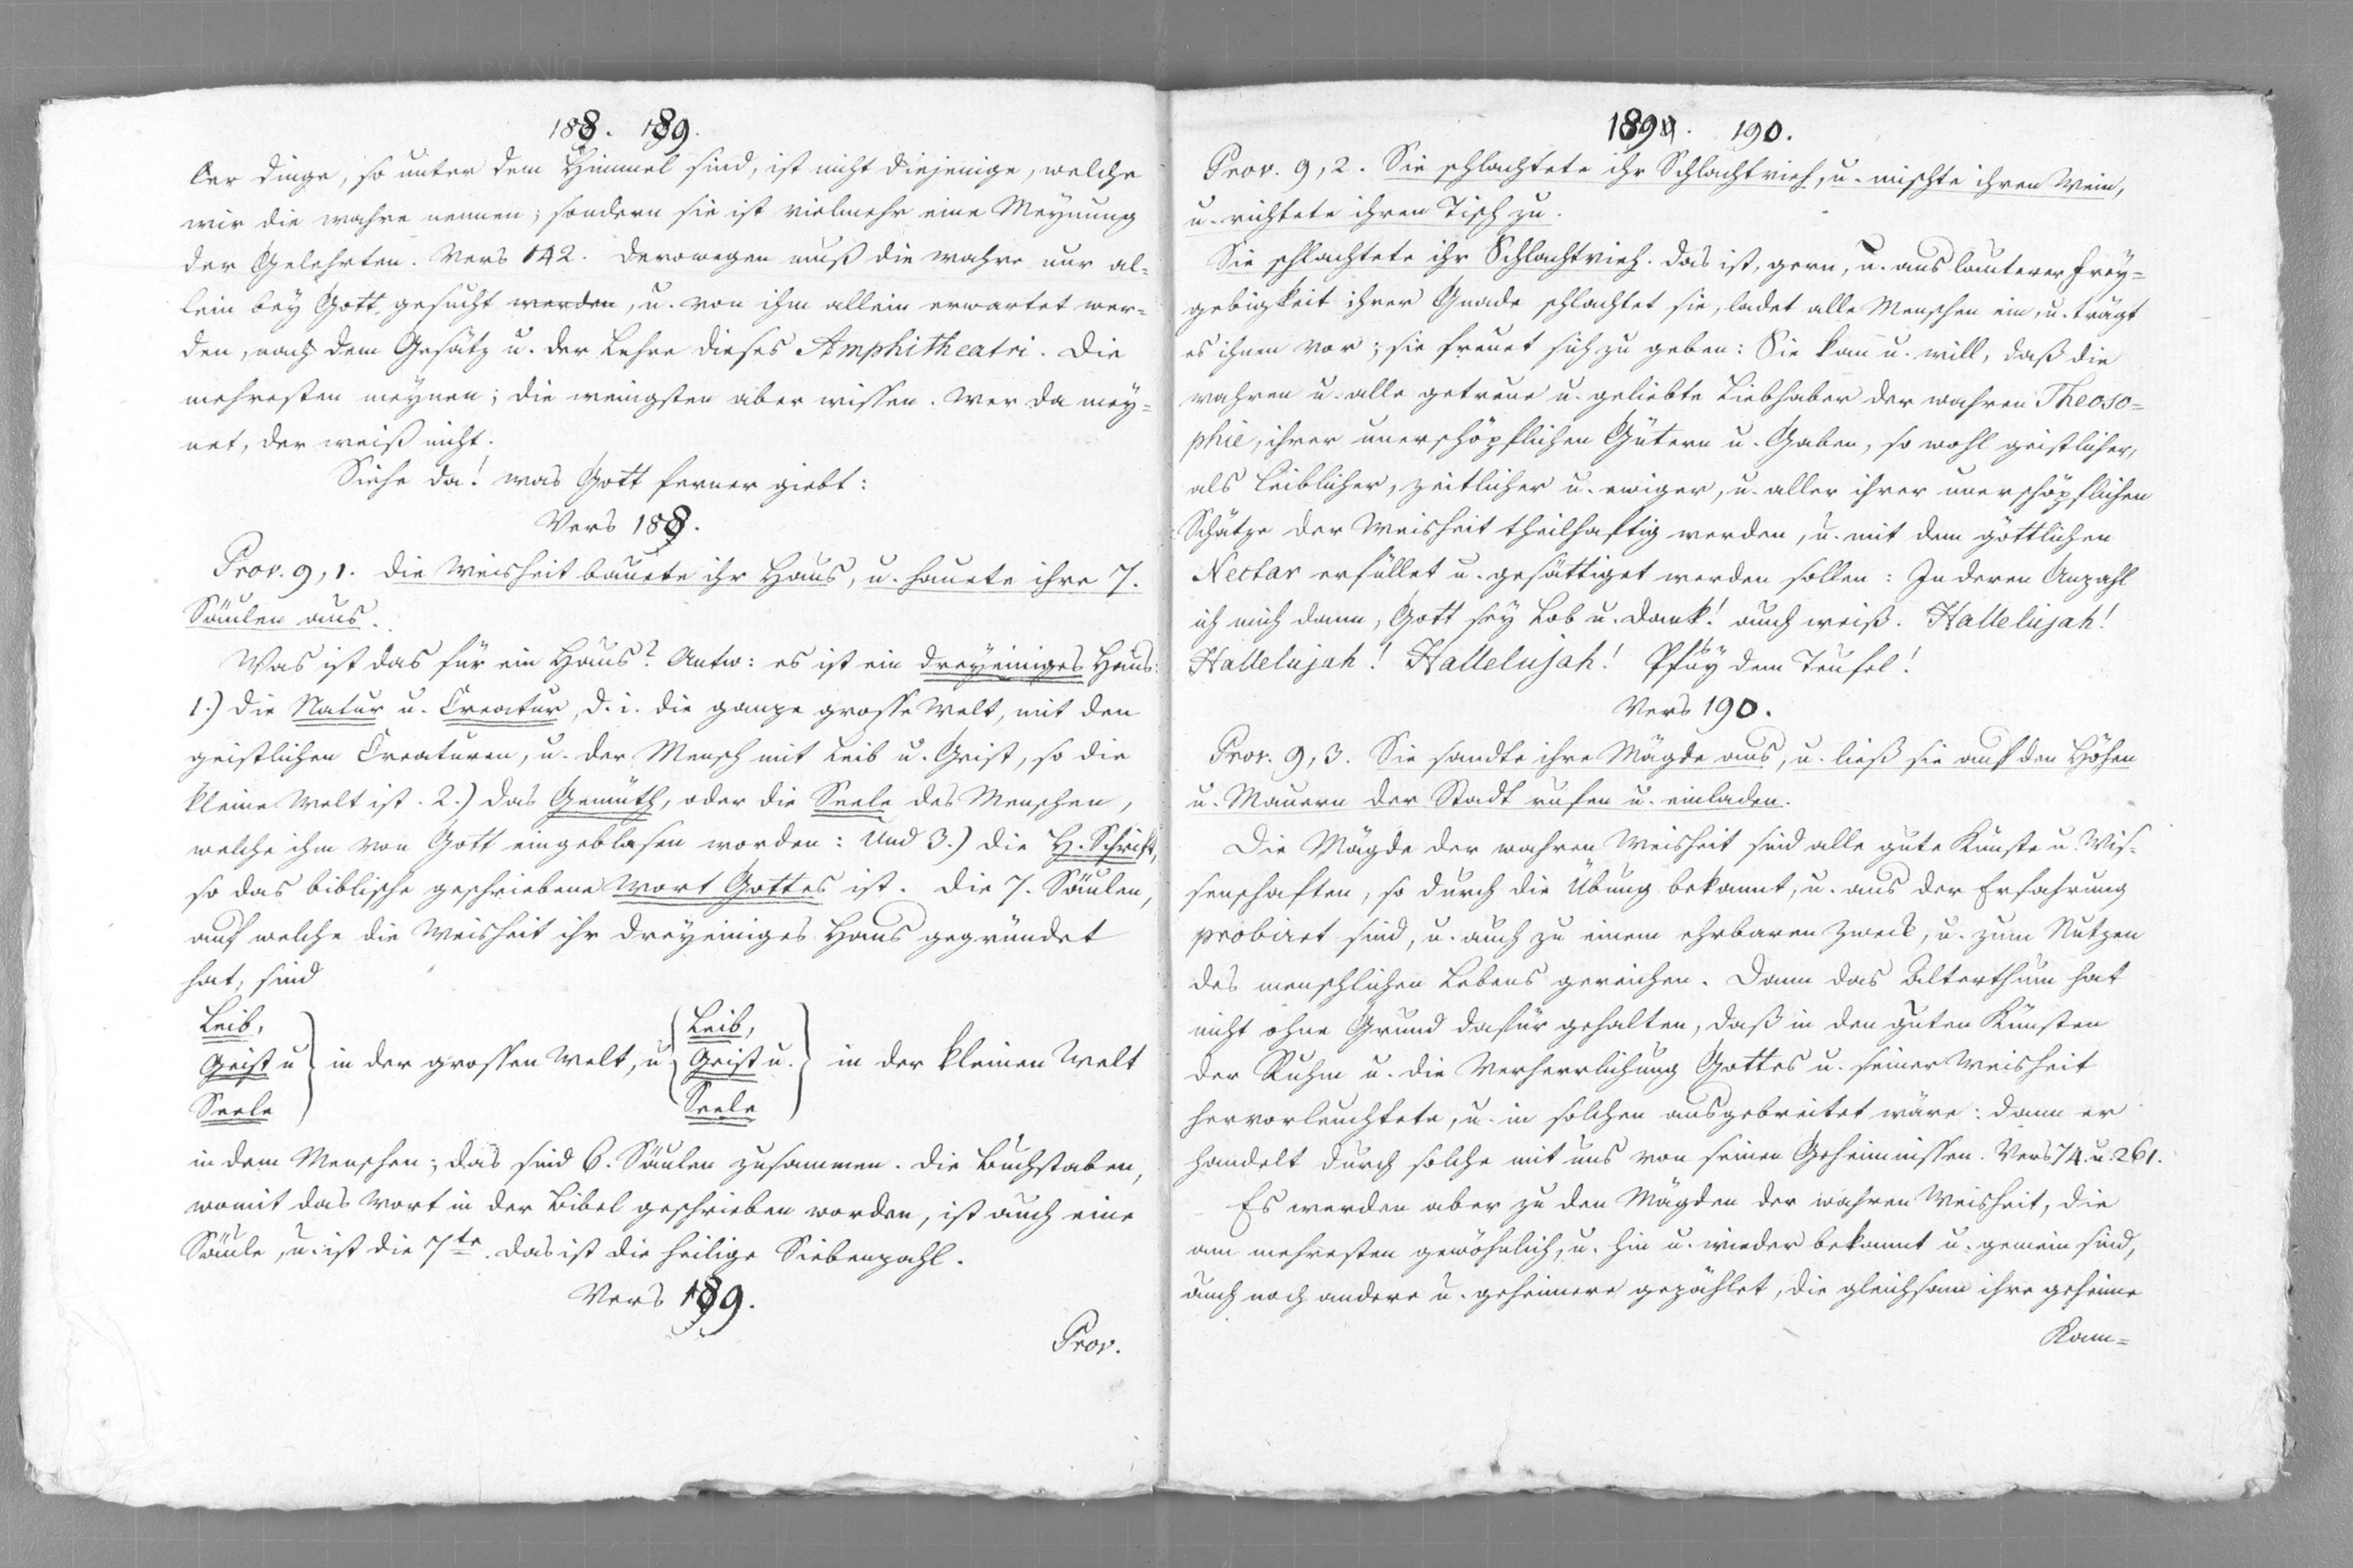 188. 189.
der Dinge, so unter dem Himmel sind, ist nicht diejenige, welche
wir die wahre nennen; sondern sie ist vielmehr eine Meynung
der Gelehrten. Vers 142. Derowegen muß die wahre nur al-
lein bey Gott gesucht werden, u. von ihm allein erwartet wer-
den, nach dem Gesätz u. der Lehre dieses Amphitheatri. Die
mehresten meynen; die wenigsten aber wissen. Wer da mey-
net, der weiß nicht.
Siehe da! was Gott ferner giebt:
Vers 188.
Prov. 9, 1. Die Weisheit bauete ihr Haus, u. hauete ihre 7.
Säulen aus.
Was ist das für ein Haus? Antw: es ist ein dreyeiniges Haus:
1.) Die Natur u. Creatur, d. i. die ganze grosse Welt, mit den
geistlichen Creaturen, u. der Mensch mit Leib u. Geist, so die
kleine Welt ist. 2.) Das Gemüth, oder die Seele des Menschen,
welche ihm von Gott eingeblasen worden: Und 3.) die H. Schrift,
so das biblische geschriebene Wort Gottes ist. Die 7. Säulen,
auf welche die Weisheit ihr dreyeiniges Haus gegründet
hat, sind
Leib, Leib,
Geist u in der grossen Welt, u Geist u. in der kleinen Welt
Seele Seele
in dem Menschen; das sind 6. Säulen zusammen. Die Buchstaben,
womit das Wort in der Bibel geschrieben worden, ist auch eine
Säule, u. ist die 7te. Das ist die heilige Siebenzahl.
Vers 189.
Prov.
189. 190.
Prov. 9, 2. Sie schlachtete ihr Schlachtvieh, u. mischte ihren Wein,
u. richtete ihren Tisch zu.
Sie schlachtete ihr Schlachtvieh. Das ist, gern, u. aus lauterer Frey-
gebigkeit ihrer Gnade schlachtet sie, ladet alle Menschen ein, u. trägt
es ihnen vor; sie freuet sich zu geben: Sie kan u. will, daß die
wahren u. alle getreue u. geliebte Liebhaber der wahren Theoso-
phie, ihrer unerschöpflichen Gütern u. Gaben, so wohl geistlicher,
als leiblicher, zeitlicher u. ewiger, u. aller ihrer unerschöpflichen
Schätze der Weisheit theilhaftig werden, u. mit dem göttlichen
Nectar erfüllet u. gesättiget werden sollen: In deren Anzahl
ich mich dann, Gott sey Lob u. Dank! auch weiß. Hallelujah!
Hallelujah! Hallelujah! Pfuy dem Teufel!
Vers 190.
Prov. 9, 3. Sie sandte ihre Mägde aus, u. ließ sie auf den Höhen
u. Mauern der Stadt rufen u. einladen.
Die Mägde der wahren Weisheit sind alle gute Künste u. Wis-
senschaften, so durch die Übung bekannt, u. aus der Erfahrung
probiret sind, u. auch zu einem ehrbaren Zweck, u. zum Nutzen
des menschlichen Lebens gereichen. Dann das Alterthum hat
nicht ohne Grund dafür gehalten, daß in den guten Künsten
der Ruhm u. die Verherrlichung Gottes u. seiner Weisheit
hervorleuchtete, u. in solchen ausgebreitet wäre: dann er
handelt durch solche mit uns von seinen Geheimnissen. Vers 74. u. 261.
Es werden aber zu den Mägden der wahren Weisheit, die
am mehresten gewöhnlich, u. hin u. wieder bekannt u. gemein sind,
auch noch andere u. geheimere gezählet, die gleichsam ihre geheime
Kam-